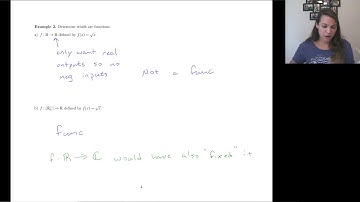 Example 2. Determine which are functions.
a) f : R → R defined by f(x) = √x
only want real
outputs so no
neg inputs
Not a func
b) f : R≥0 → R defined by f(x) = √x
func
f: R → C would have also "fixed" it